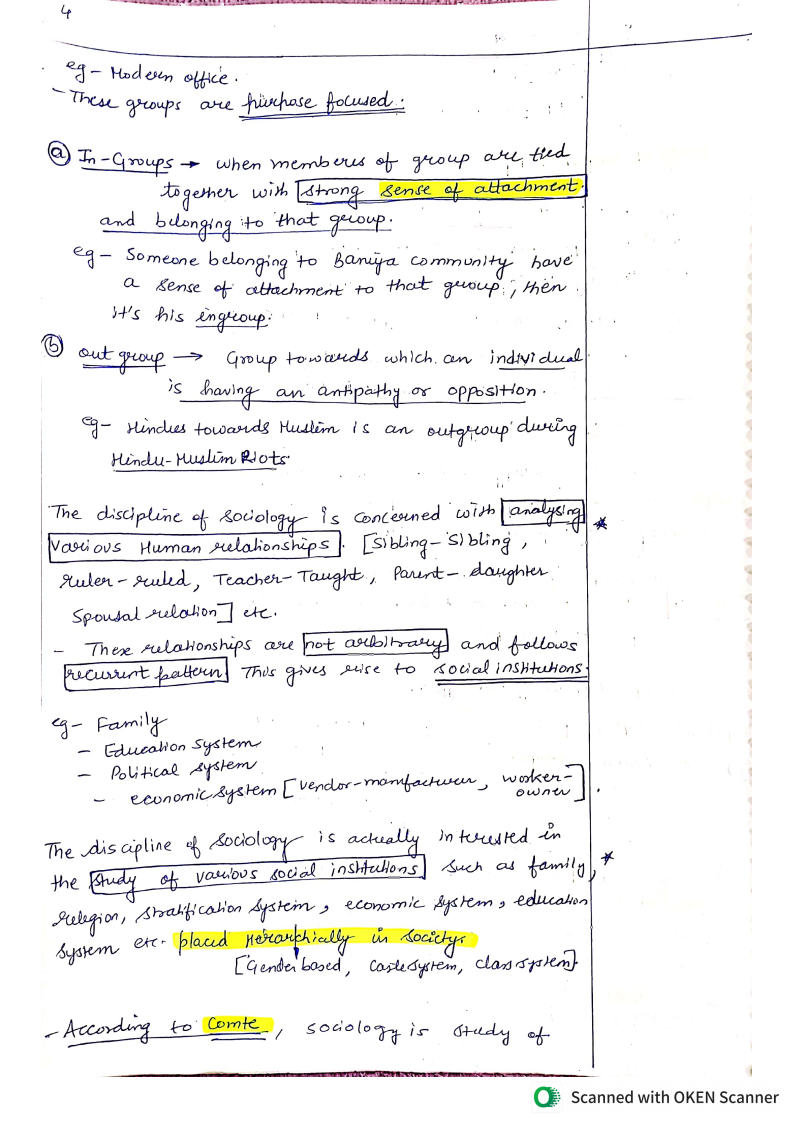 4
eg - Modern office.
- These groups are purpose focused.
(a) In-Groups → when members of group are tied
together with strong sense of attachment
and belonging to that group.
eg - Someone belonging to Baniya community have
a sense of attachment to that group, then
it's his ingroup.
(b) out group → Group towards which an individual
is having an antipathy or opposition.
eg - Hindus towards Muslim is an outgroup during
Hindu-Muslim Riots.
The discipline of sociology is concerned with analysing *
various Human relationships. [Sibling-Sibling,
ruler-ruled, Teacher-Taught, Parent-daughter
Spousal relation] etc.
- These relationships are not arbitrary and follows
recurrent pattern Thus gives rise to social institutions.
eg - Family
- Education system
- Political system
- economic system [vendor-manufacturer, worker-
owner].
The discipline of sociology is actually interested in
the study of various social institutions such as family, *
religion, stratification system, economic system, education
system etc. placed Herarchially in society.
[Gender based, caste system, class system]
- According to Comte, sociology is study of
Scanned with OKEN Scanner